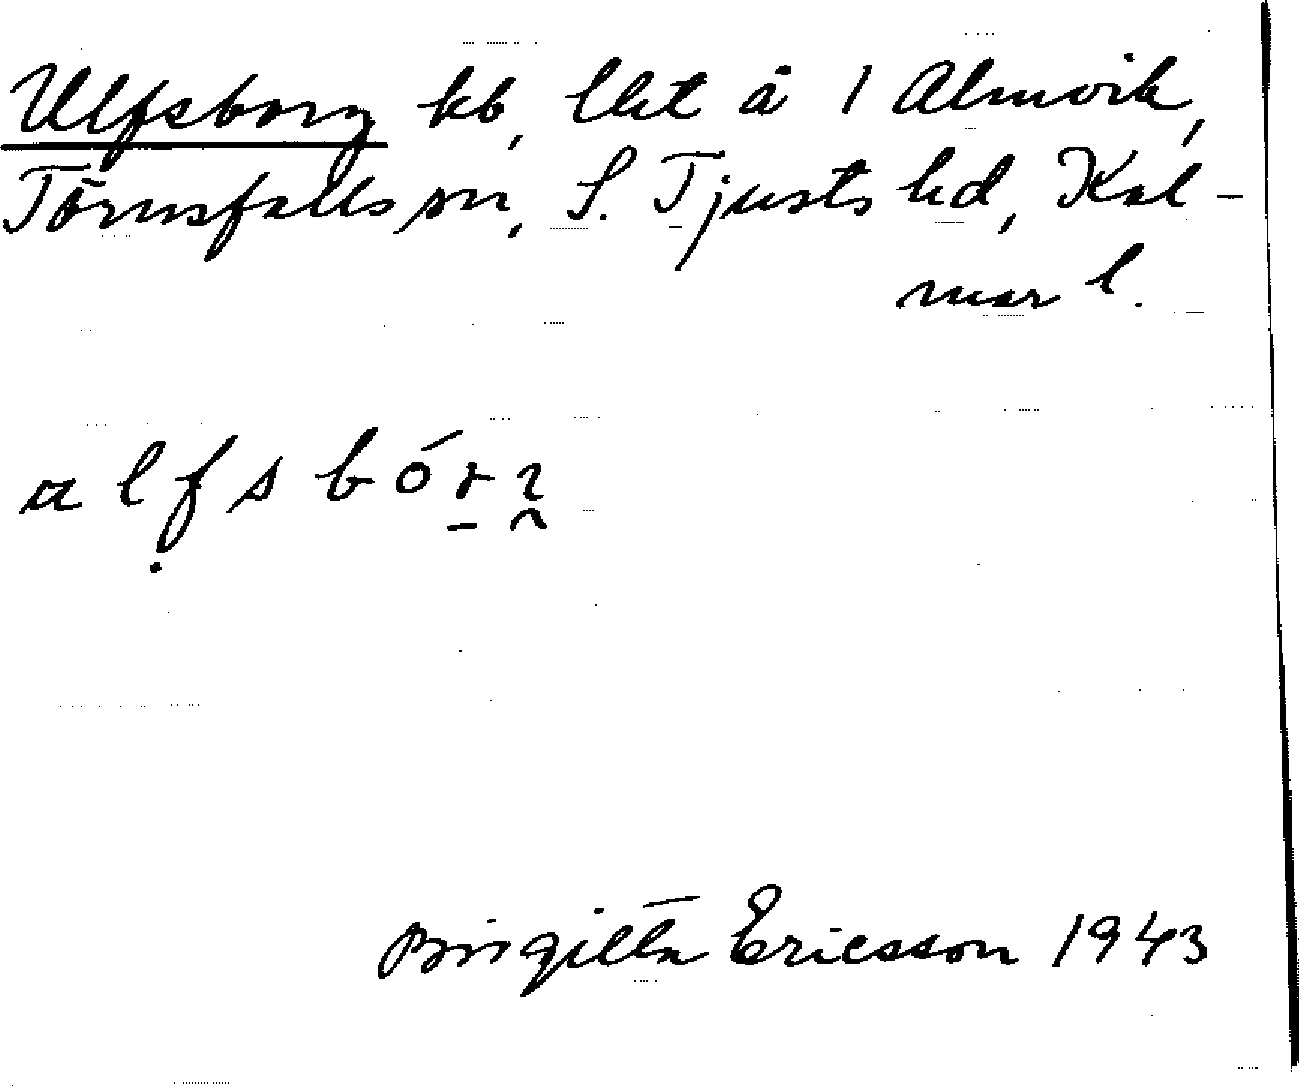 Ulfsborg kb, lht å 1 Almvik,
Törnsfalls sn, S. Tjusts hd, Kal-
mar l.
Birgitta Ericsson 1943